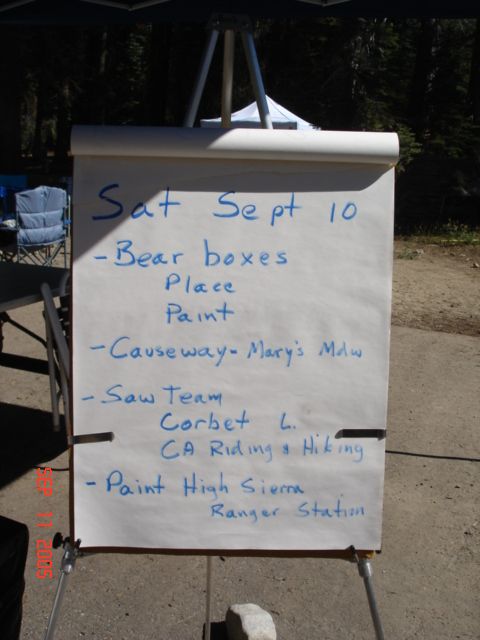 Sat Sept 10
- Bear boxes
Place
Paint
- Causeway - Mary's Mdw
- Saw Team
Corbet L.
CA Riding & Hiking
- Paint High Sierra
Ranger Station
SEP 11 2005